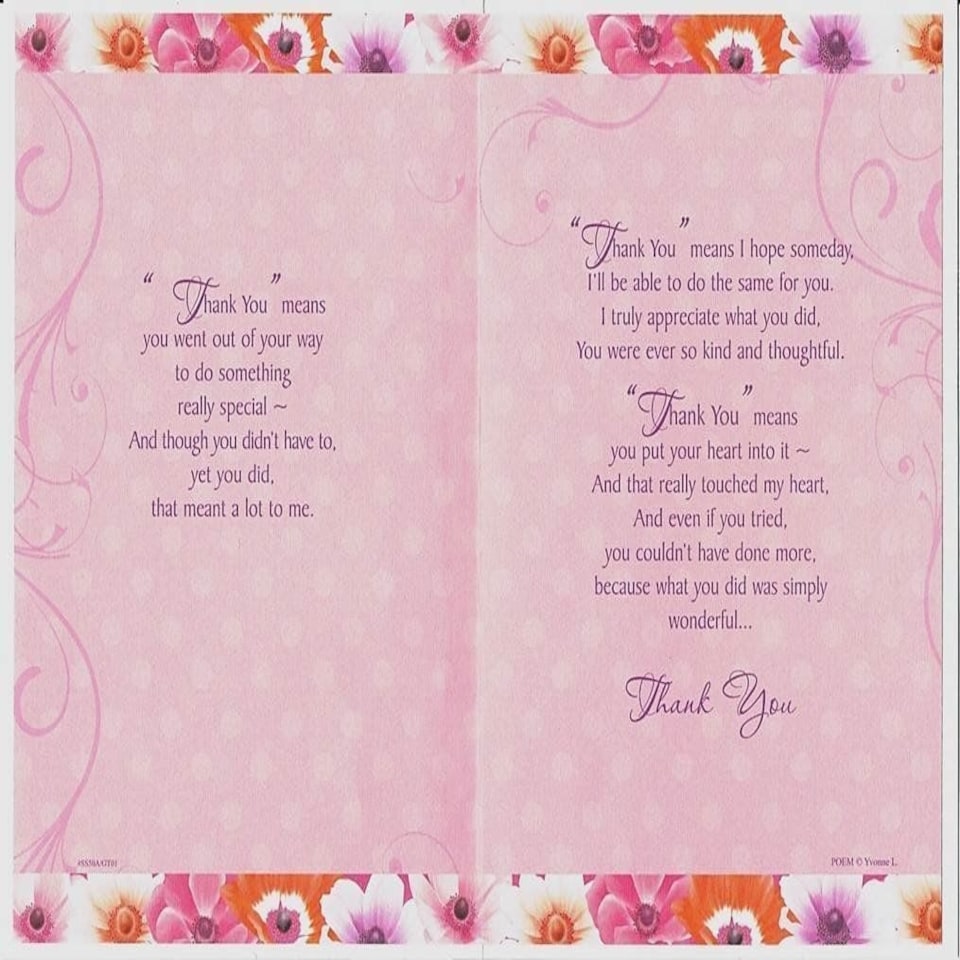 "Thank You" means
you went out of your way
to do something
really special ~
And though you didn't have to,
yet you did,
that meant a lot to me.
"Thank You" means I hope someday,
I'll be able to do the same for you.
I truly appreciate what you did,
You were ever so kind and thoughtful.
"Thank You" means
you put your heart into it ~
And that really touched my heart,
And even if you tried,
you couldn't have done more,
because what you did was simply
wonderful...
Thank You
POEM © Yvonne L.